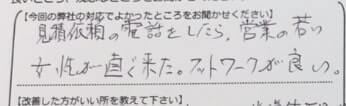 【今回の弊社の対応でよかったところをお聞かせください】
見積依頼の電話をしたら、営業の若い
女性が直ぐ来た。フットワークが良い。
【改善した方がいい所を教えて下さい】